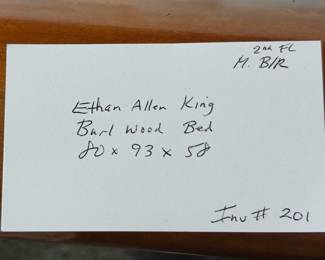 2nd FL
M. B/R
Ethan Allen King
Burl Wood Bed
80 x 93 x 58
Inv # 201